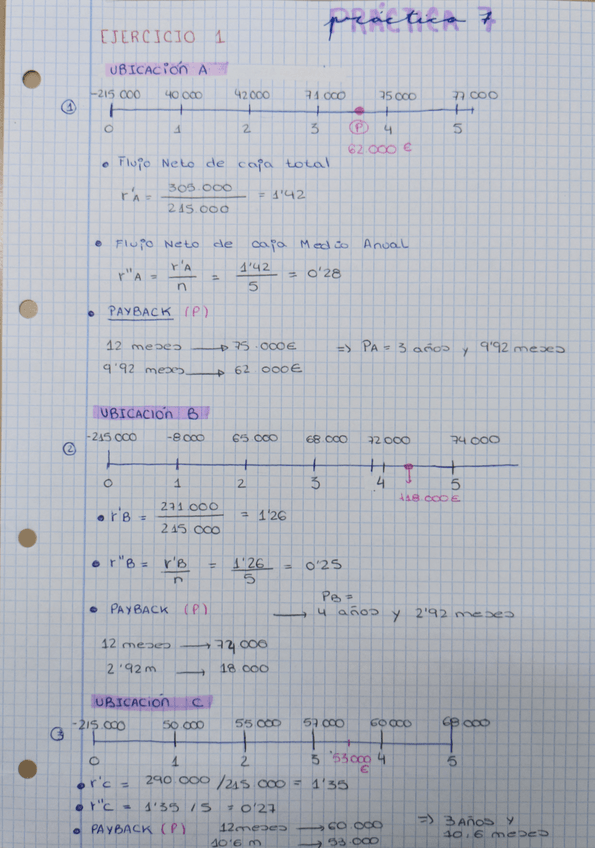 PRÁCTICA 7
práctica 7
EJERCICIO 1
UBICACIÓN A
-215 000 40 000 42 000 71 000 75 000 77 000
① 0 1 2 3 Ⓟ 4 5
62.000 €
• Flujo Neto de caja total
r'A = 305.000 / 215.000 = 1'42
• Flujo Neto de caja Medio Anual
r''A = r'A / n = 1'42 / 5 = 0'28
• PAYBACK (P)
12 meses → 75.000€ => PA = 3 años y 9'92 meses
9'92 meses → 62 000€
UBICACIÓN B
-215 000 -8 000 65 000 68.000 72 000 74 000
② 0 1 2 3 4 5
18 000€
• r'B = 271 000 / 215 000 = 1'26
• r''B = r'B / n = 1'26 / 5 = 0'25
PB =
• PAYBACK (P) → 4 años y 2'92 meses
12 meses → 74 000
2'92 m → 18 000
UBICACIÓN C
-215.000 50 000 55 000 57 000 60 000 68 000
③ 0 1 2 3 53 000 € 4 5
• r'c = 290.000 / 215 000 = 1'35
• r''c = 1'35 / 5 = 0'27
• PAYBACK (P) 12 meses → 60.000 => 3 AÑOS Y
10'6 m → 53 000 10,6 meses